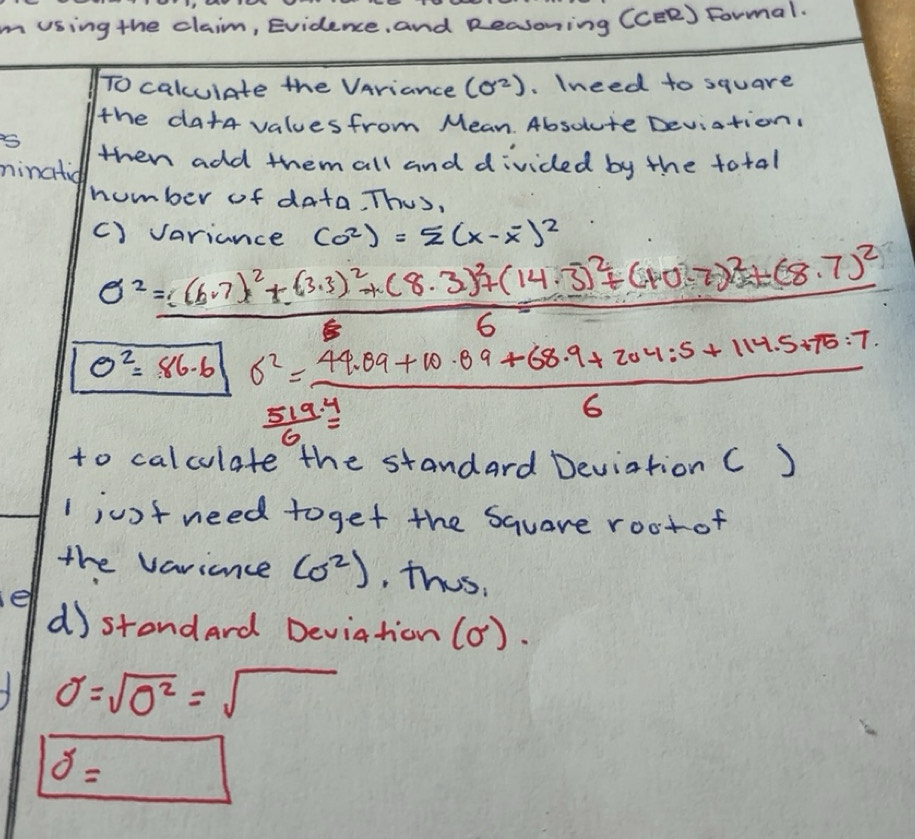 m using the claim, Evidence, and Reasoning (CER) Formal.
To calculate the Variance (σ²). I need to square
the data values from Mean Absolute Deviation,
then add them all and divided by the total
number of data. Thus,
c) Variance (σ²) = Σ(x-x̄)²
σ² = (6.7)² + (3.3)² + (8.3)² + (14.3)² + (10.7)² + (8.7)²
6
σ² = 86.6 σ² = 44.89 + 10.89 + 68.9 + 204.5 + 114.5 + 75.7.
519.4 =
6
6
to calculate the standard Deviation ( )
I just need to get the square root of
the variance (σ²). Thus,
d) standard Deviation (σ).
σ = √σ² = √
σ =